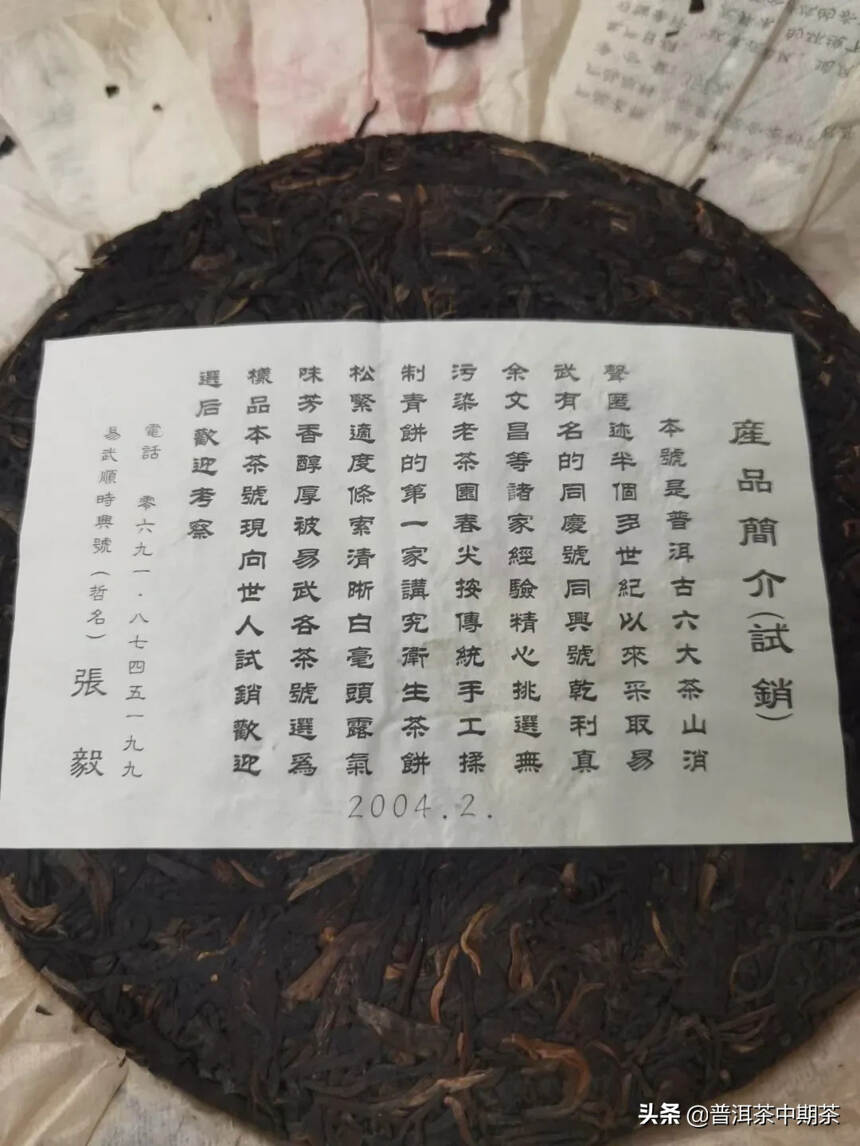 產品簡介(試銷)
本號是普洱古六大茶山消
聲匿迹半個多世紀以來采取易
武有名的同慶號同興號乾利真
余文昌等諸家經驗精心挑選無
污染老茶園春尖按傳統手工揉
制青餅的第一家講究衛生茶餅
松緊適度條索清晰白毫頭露氣
味芳香醇厚被易武各茶號選為
樣品本茶號現向世人試銷歡迎
選后歡迎考察
電話 零六九一·八七四五一九九
易武順時興號(哲名) 張毅
2004.2.
头条 @普洱茶中期茶